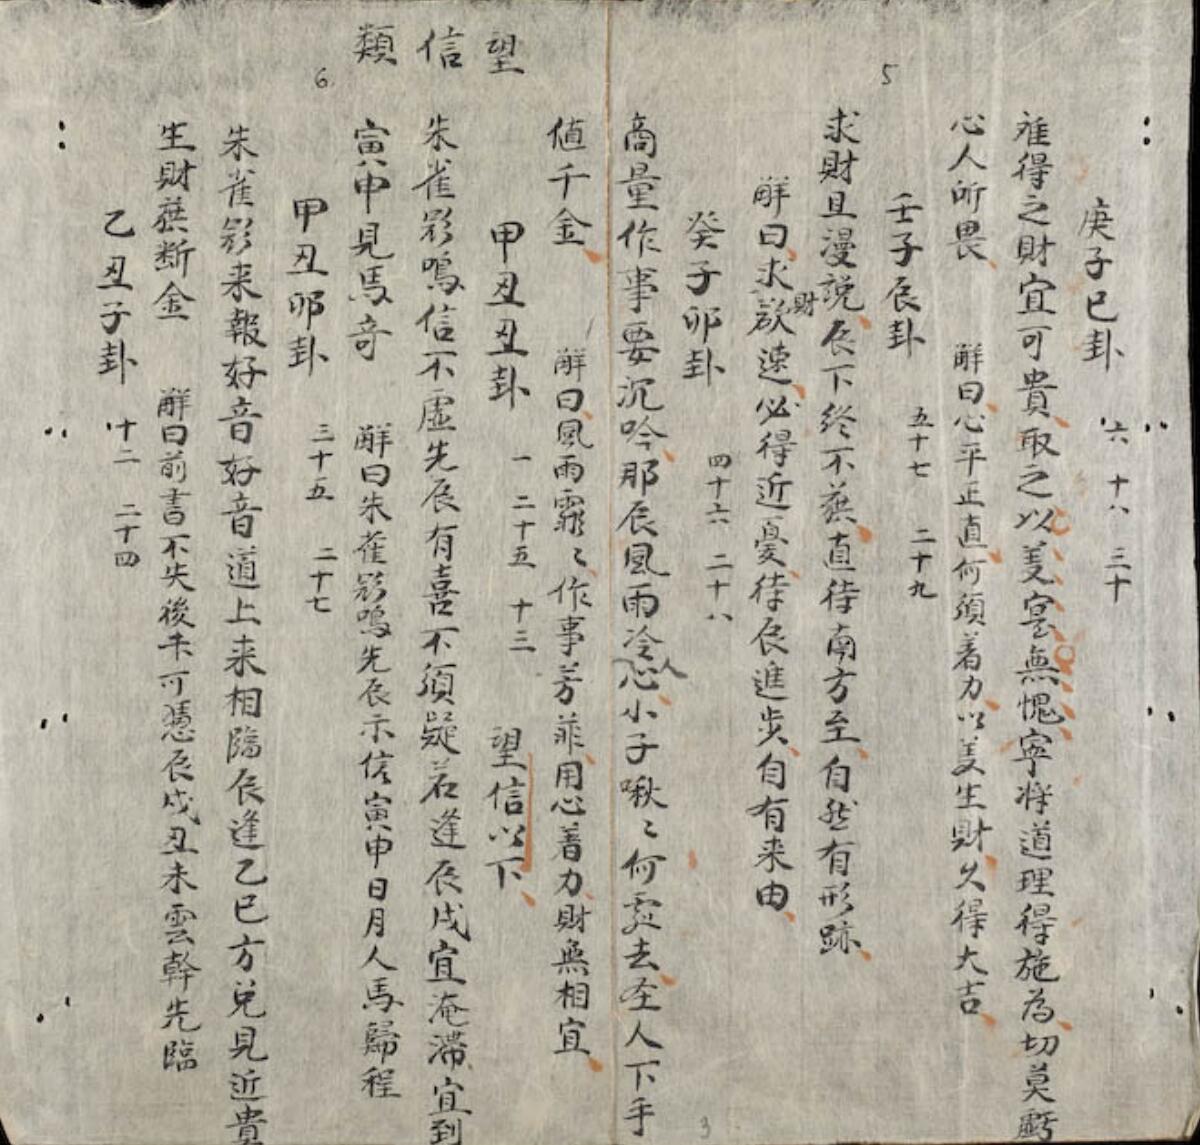 5
庚子巳卦　六　十八　三十
難得之財宜可貴取之以美寔無愧寧將道理得施為切莫虧
心人所畏　解曰心平正直何須着力以美生財久得大吉
壬子辰卦　五十七　二十九
求財且漫說辰下終不蔟直待南方至自然有形跡
解曰求財欲速必得近憂待辰進步自有来由
癸子卯卦　四十六　二十八
商量作事要沉吟那辰風雨冷人心小子啾〻何處去全人下手
值千金　解曰風雨霏〻作事芳菲用心着力財無相宜
望信類
6
甲丑丑卦　一　二十五　十三　望信以下
朱雀影鳴信不虛先辰有喜不須疑若逢辰戌宜淹滯宜到
寅申見馬奇　解曰朱雀影鳴先辰示信寅申日月人馬歸程
甲丑卯卦　三十五　二十七
朱雀影来報好音好音道上来相臨辰逢乙巳方兌見近貴
生財蔟断金　解曰前書不失後未可憑辰戌丑未雲幹先臨
乙丑子卦　十二　二十四
3